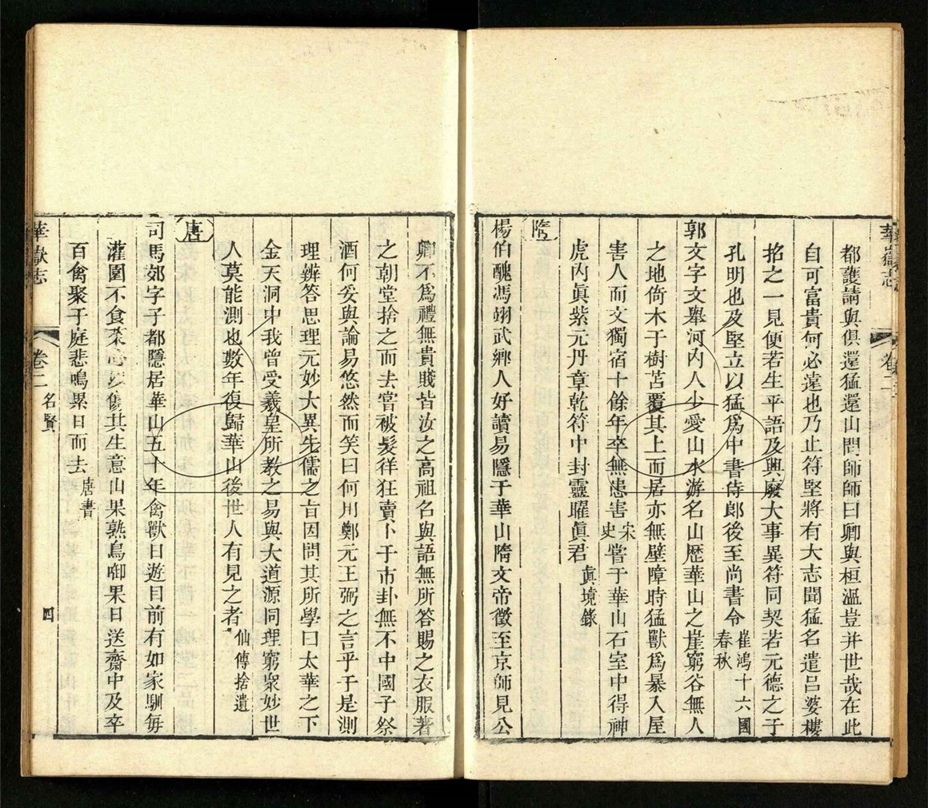 華嶽志
卷二
都護請與俱還猛還山問師師曰卿與桓溫豈并世哉在此
自可富貴何必遠也乃止符堅將有大志聞猛名遣呂婆樓
招之一見便若生平語及興廢大事異符同契若元德之于
孔明也及堅立以猛爲中書侍郎後至尚書令崔鴻十六國春秋
郭文字文舉河內人少愛山水游名山歷華山之崖窮谷無人
之地倚木于樹苫覆其上而居亦無壁障時猛獸爲暴入屋
害人而文獨宿十餘年卒無患害宋史嘗于華山石室中得神
虎內眞紫元丹章乾符中封靈曜眞君眞境錄
隋
楊伯醜馮翊武鄉人好讀易隱于華山隋文帝徵至京師見公
卿不爲禮無貴賤皆汝之高祖召與語無所答賜之衣服著
之朝堂捨之而去嘗被髮徉狂賣卜于市卦無不中國子祭
酒何妥與論易悠然而笑曰何用鄭元王弼之言乎于是測
理辨答思理元妙大異先儒之旨因問其所學曰太華之下
金天洞中我曾受羲皇所教之易與大道源同理窮衆妙世
人莫能測也數年復歸華山後世人有見之者仙傳拾遺
唐
司馬郊字子都隱居華山五十年禽獸日遊目前有如家馴每
灌園不食菜心
其生意山果熟鳥啣果日送齋中及卒
百禽聚于庭悲鳴累日而去唐書
華嶽志
卷二
名賢
四